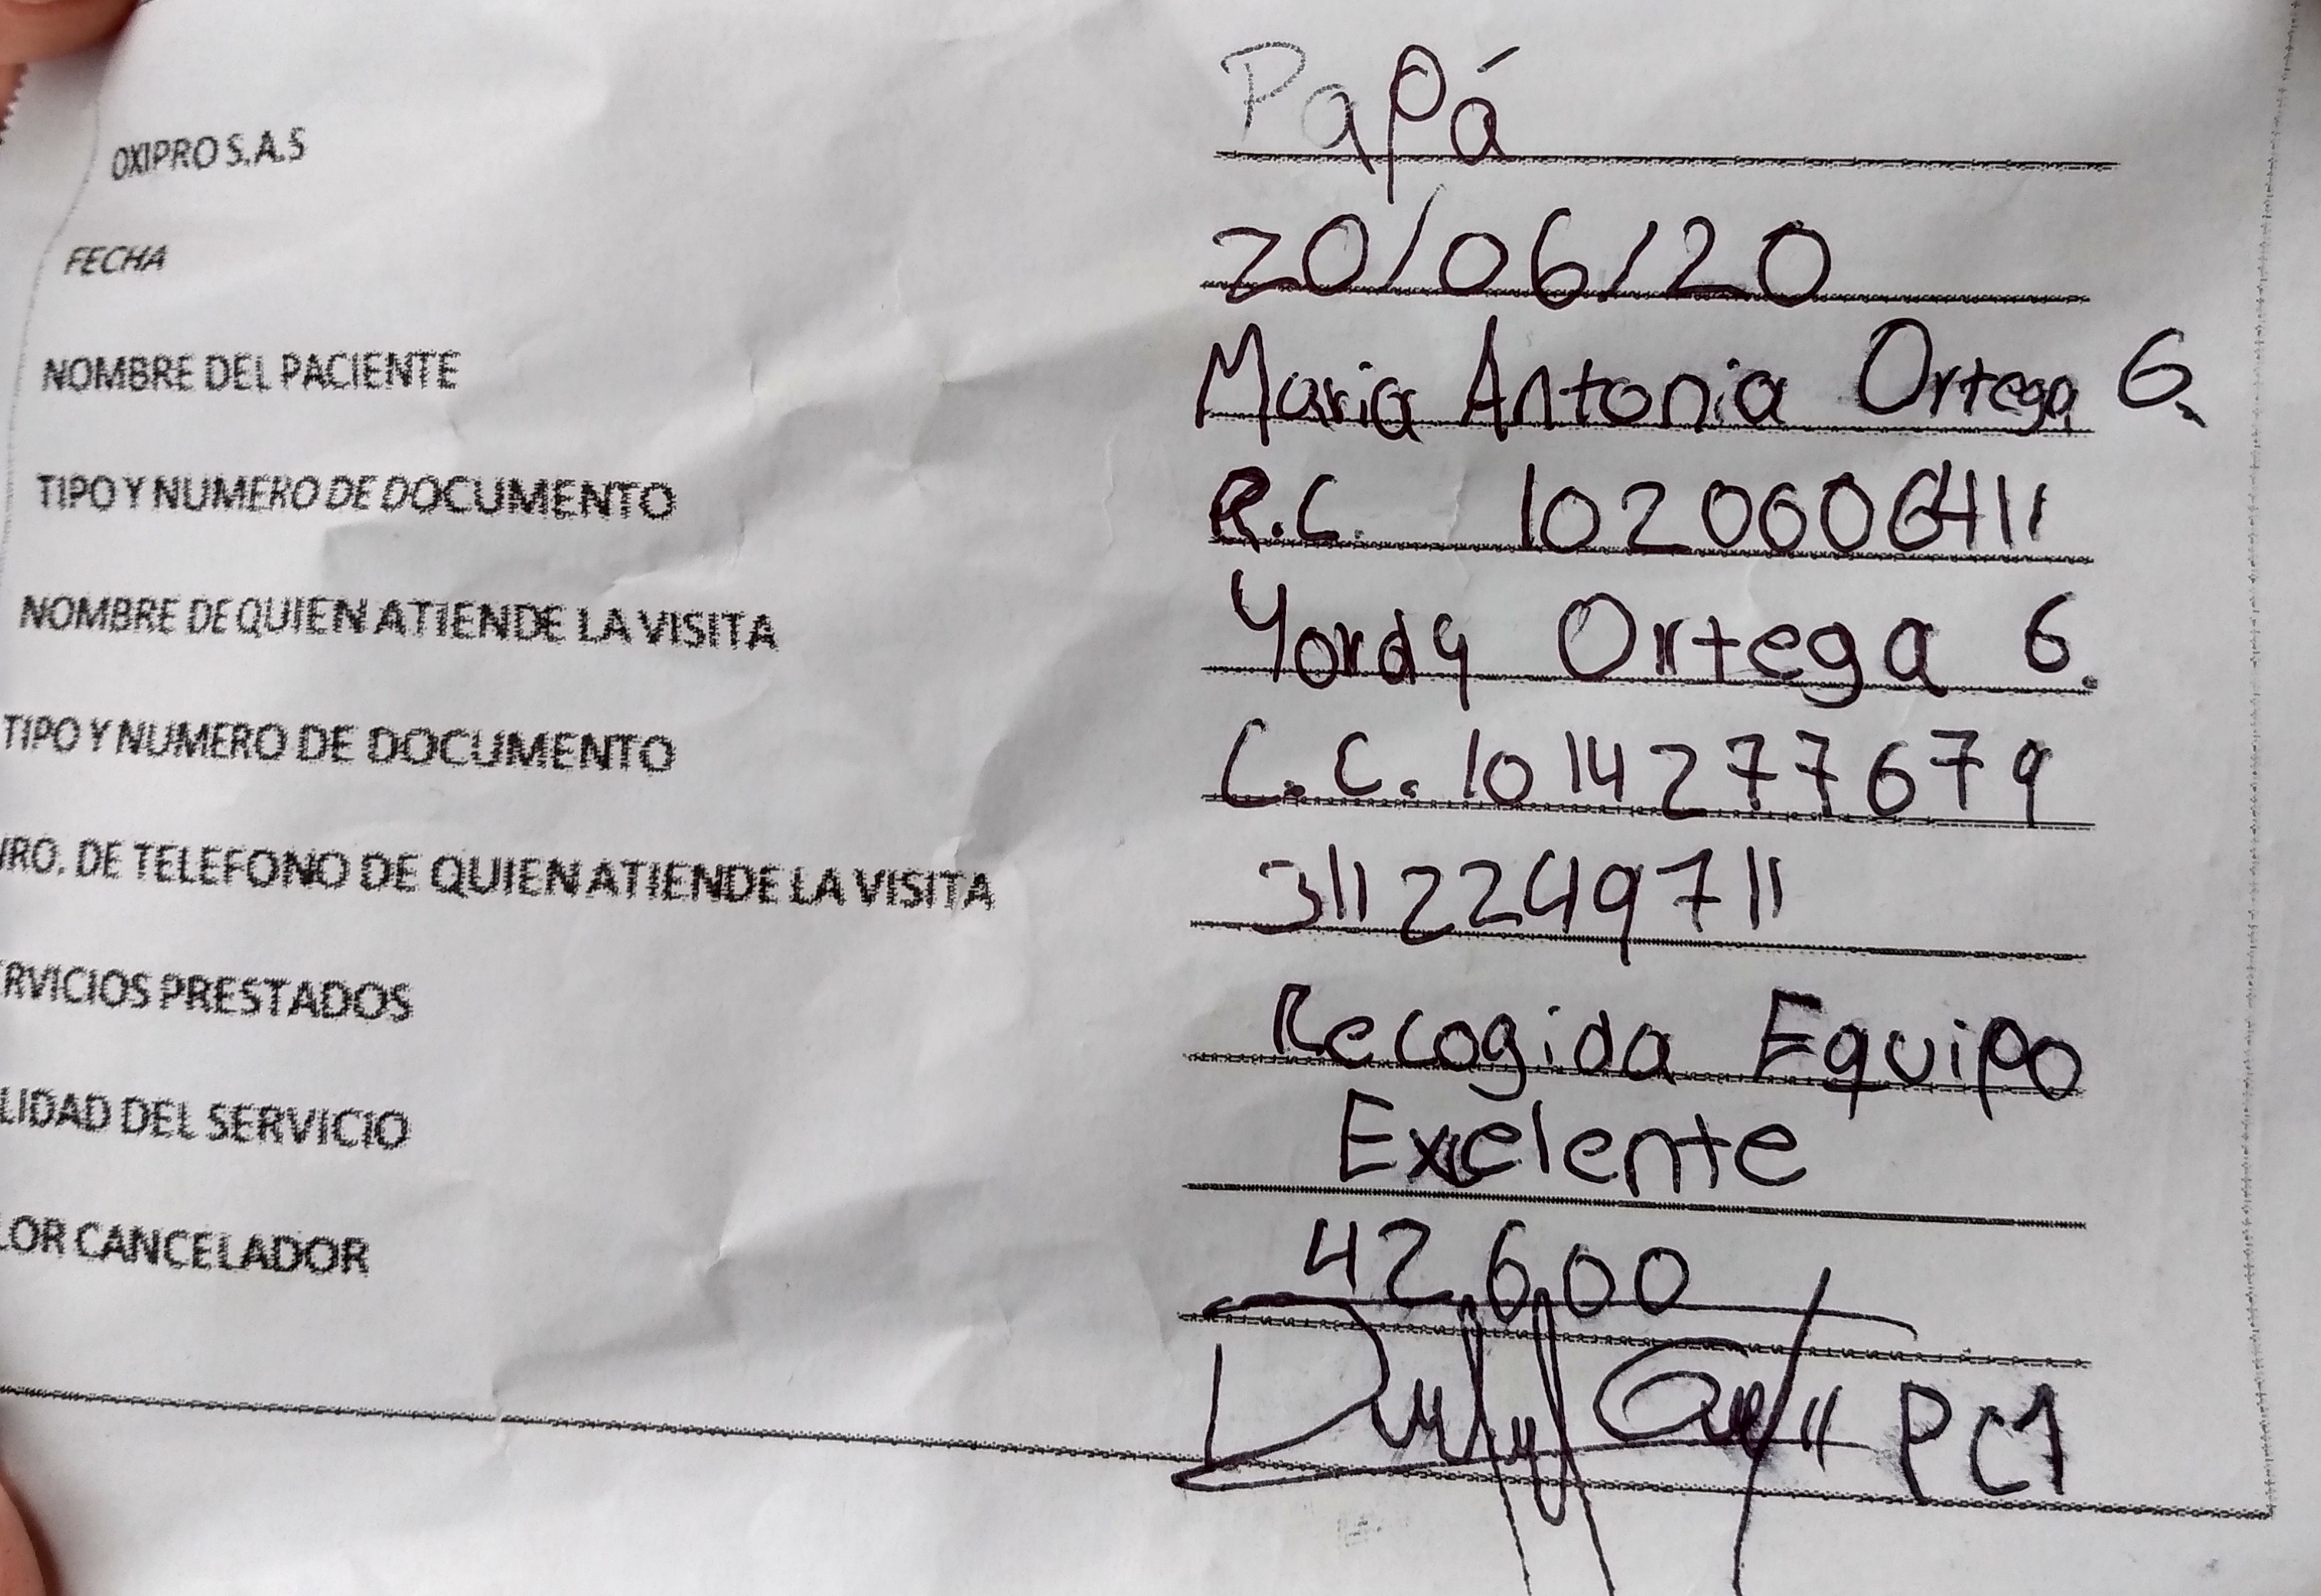 OXIPRO S.A.S Papá
FECHA 20/06/20
NOMBRE DEL PACIENTE Maria Antonia Ortega G.
TIPO Y NUMERO DE DOCUMENTO R.C. 1020606411
NOMBRE DE QUIEN ATIENDE LA VISITA Yordy Ortega G.
TIPO Y NUMERO DE DOCUMENTO C.C. 1014277679
NRO. DE TELEFONO DE QUIEN ATIENDE LA VISITA 3112249711
RVICIOS PRESTADOS Recogida Equipo
LIDAD DEL SERVICIO Exelente
LOR CANCELADOR 42.600
PC1